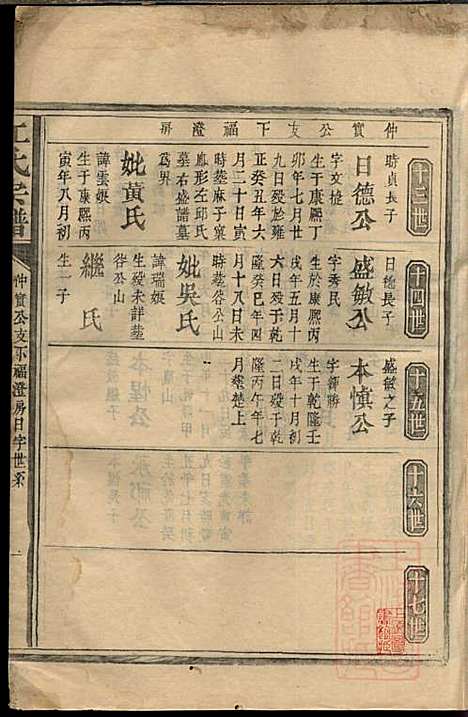 仲實公支下福澄房
十三世
時貞長子
日德公
字文捷
生于康熙丁
卯年七月廿
九日殁於雍
正癸丑年六
月二十日寅
時塟麻子寨
鳳形左邱氏
墓右盛譜墓
爲界
妣黃氏
諱雲娘
生于康熙丙
寅年八月初
十四世
日德長子
盛敏公
字秀民
生於康熙丙
戌年五月十
六日殁于乾
隆癸巳年四
月十八日未
時塟谷公山
妣吳氏
諱瑞娘
生殁未詳塟
谷公山
繼氏
生一子
十五世
盛敏之子
本慎公
生于乾隆壬
戌年十月初
二日殁于乾
隆丙午年七
月塟楚上
十六世
十七世
氏宗譜
仲實公支下福澄房日字世系